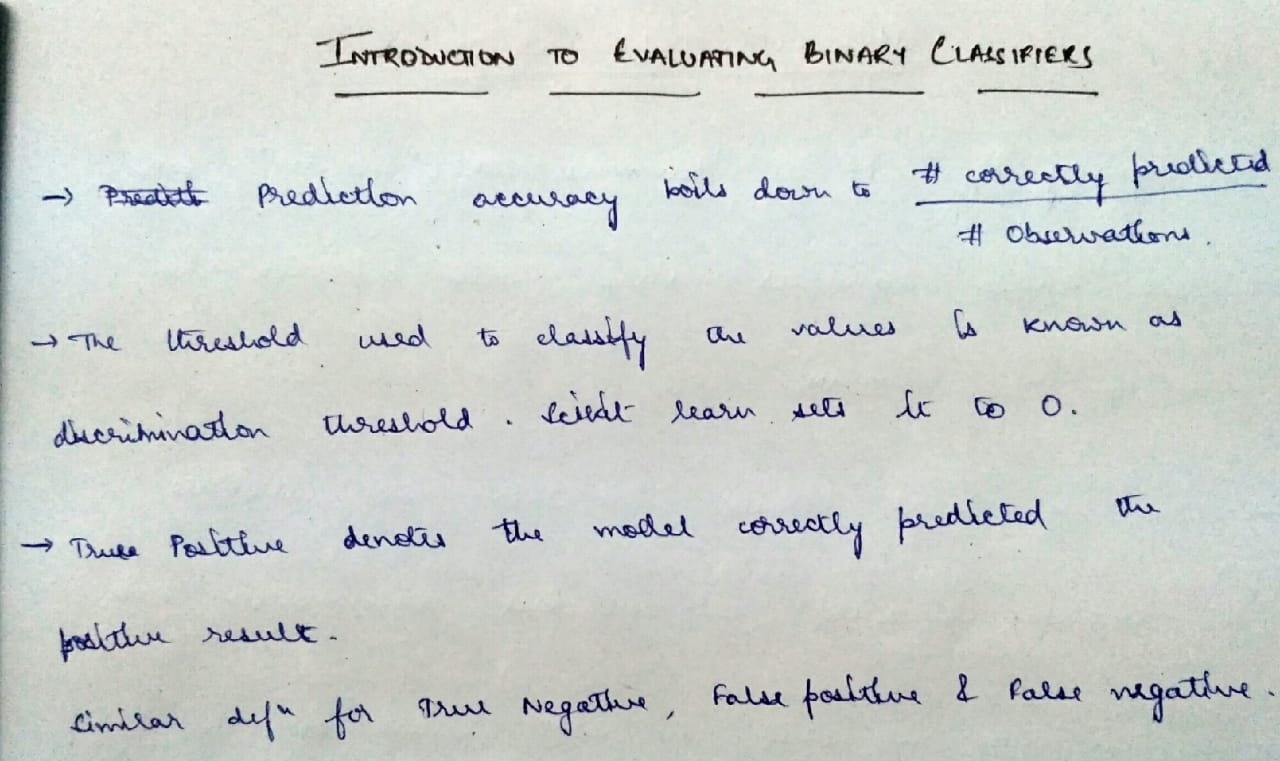 INTRODUCTION TO EVALUATING BINARY CLASSIFIERS
→ Prediction accuracy boils down to # correctly predicted
# Observations.
→ The threshold used to classify the values is known as
discrimination threshold. Scikit learn sets it to 0.
→ True Positive denotes the model correctly predicted the
positive result.
Similar defⁿ for True Negative, False positive & False negative.